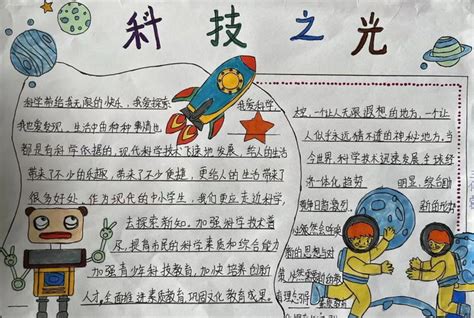 科技之光
科学带给我无限的快乐，我爱探索，我爱科学，
我也爱发现，生活中的种种事情也
都是有科学依据的，现代科学技术飞速地发展，给人的生活
带来了不少的乐趣，带来了不少便捷，更给人的生活带来了
很多好处，作为现代的中小学生，我们更应走近科学，
去探索新知，加强科学技术普
及，提高市民的科学素质和综合能力
加强青少年科技教育，加快培养创新
人才，全面推进素质教育巩固文化教育成果。
太空，一个让人无限遐想的地方，一个让
人似乎永远猜不透的神秘地方，当
今世界，科学技术迅速发展，全球经
济一体化趋势 明显，综合国
竞争日趋激烈 新的形
新的思想对